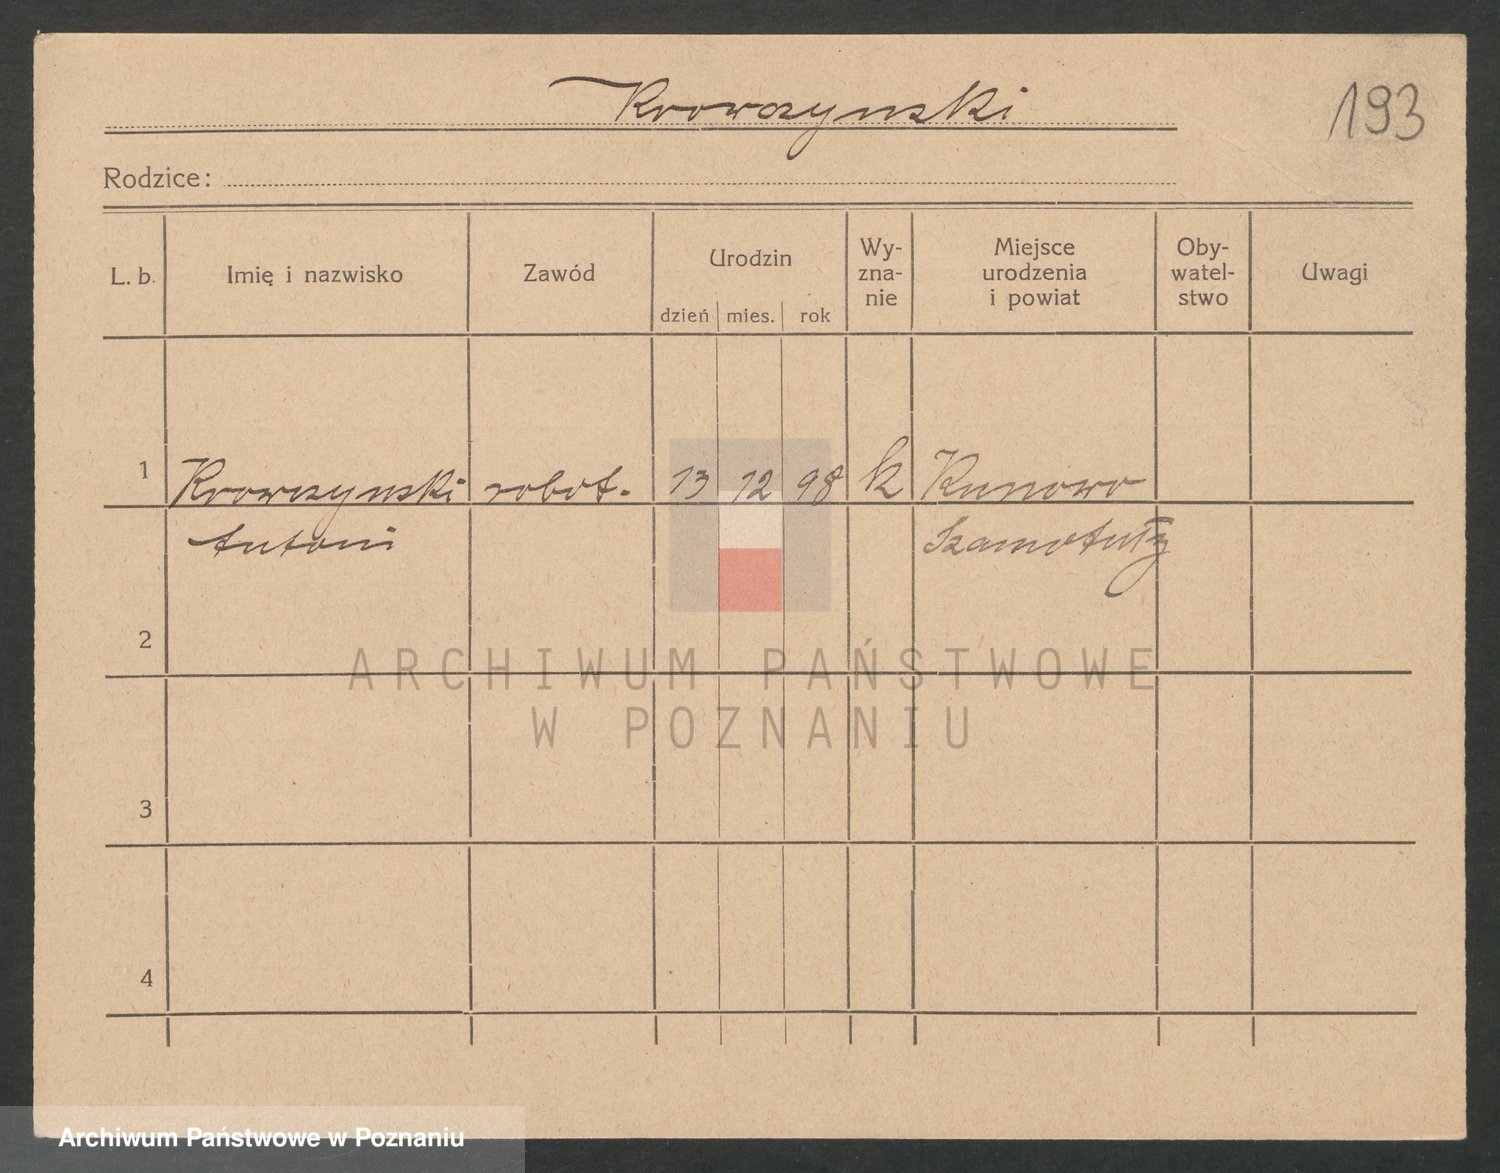 Krowczynski
193
Rodzice:
L. b.
Imię i nazwisko
Zawód
Urodzin
dzień mies. rok
Wy-
zna-
nie
Miejsce
urodzenia
i powiat
Oby-
watel-
stwo
Uwagi
1 Krowczynski robot. 13 12 98 k Kunowo
Antoni Szamotuły
2
ARCHIWUM PAŃSTWOWE
W POZNANIU
3
4
Archiwum Państwowe w Poznaniu